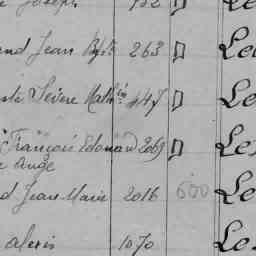 Joseph 952 Le
Jean Bte 263 D Le
Sévère Math 447 D Le
François Edouard 2069 D Le
Ange
Jean Marie 2016 600 Le
Alexis 1070 Le